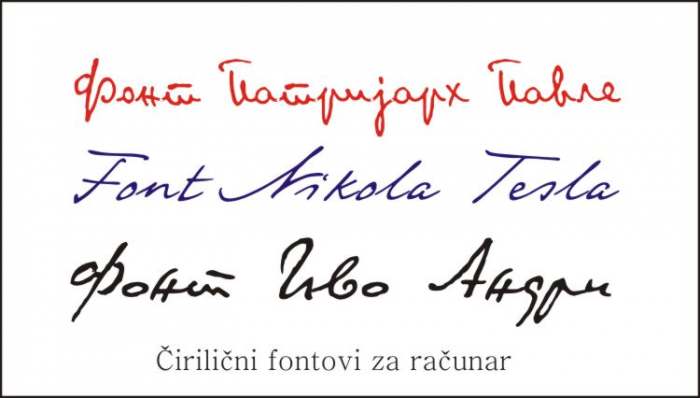 Фонт Патријарх Павле
Font Nikola Tesla
Фонт Иво Андри
Čirilični fontovi za računar